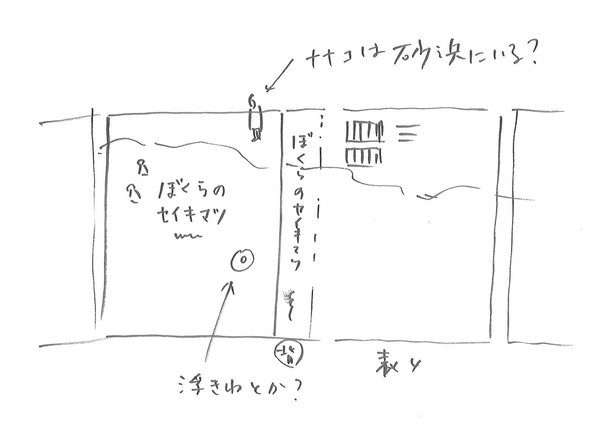 ナナコは砂浜にいる?
ぼくらの
セイキマツ
ぼくらのセイキマツ
浮きわとか?
表4